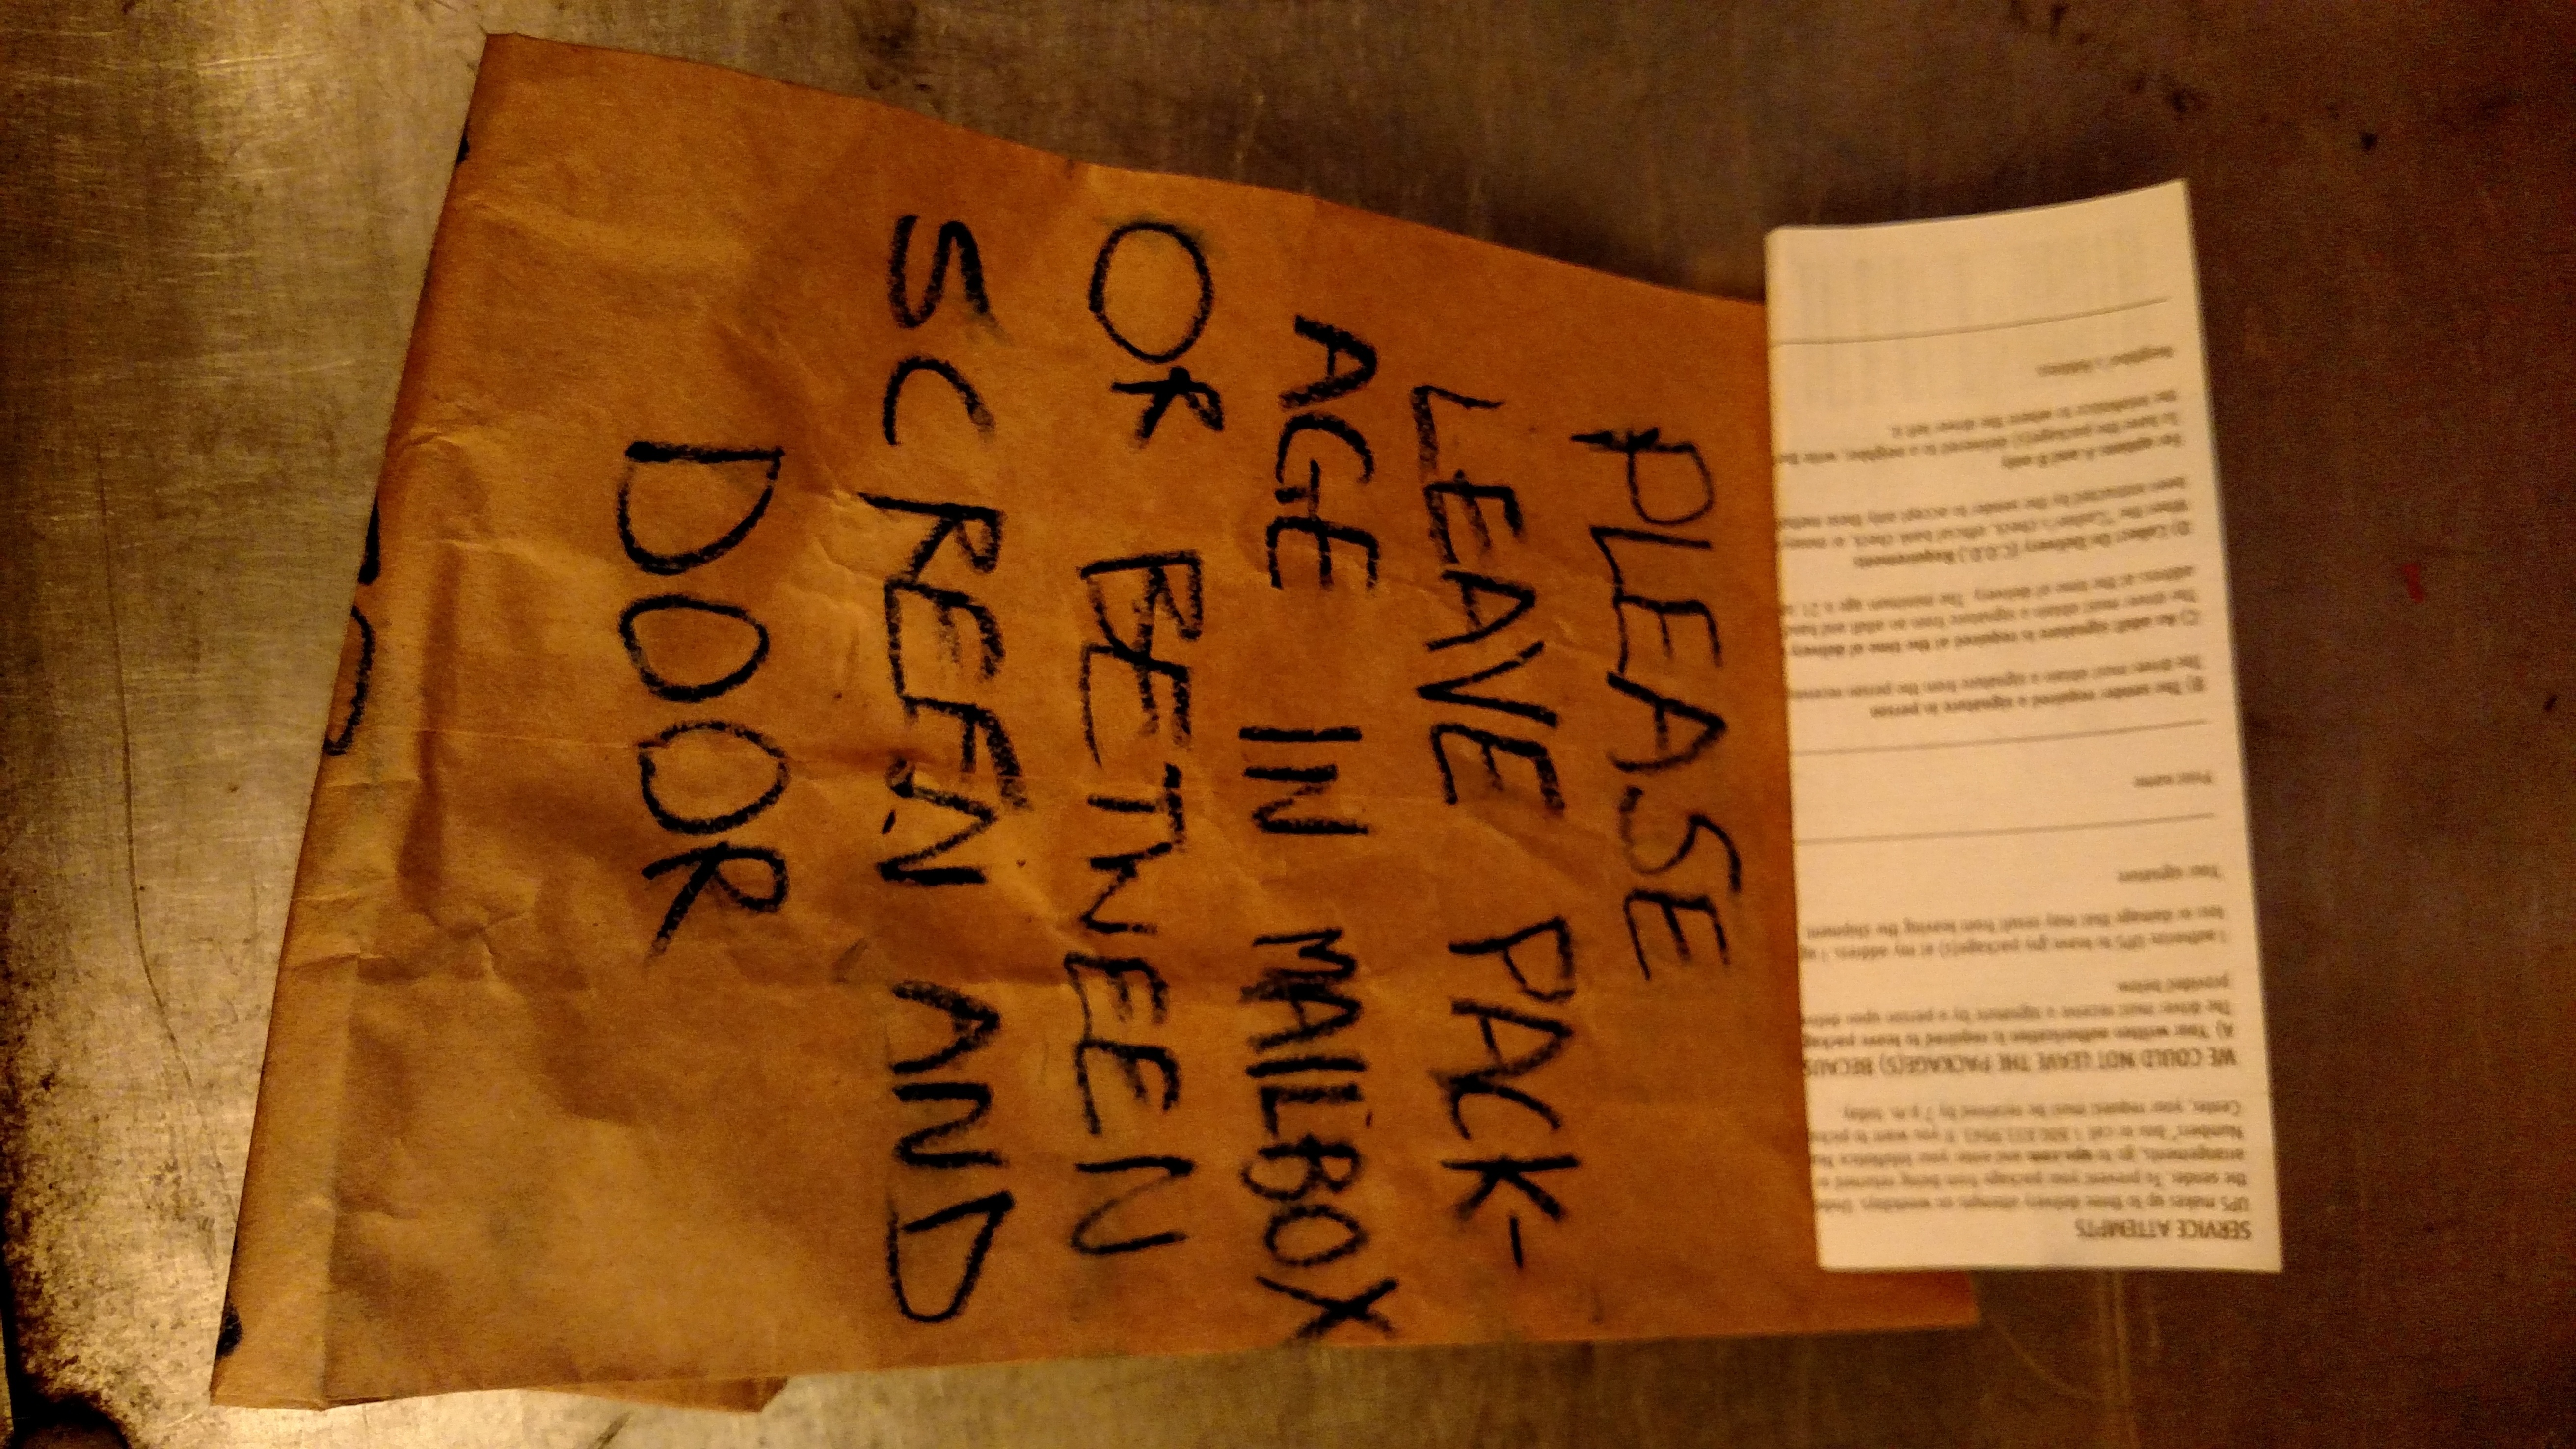 PLEASE
LEAVE PACK-
AGE IN MAILBOX
OR BETWEEN
SCREEN AND
DOOR
SERVICE ATTEMPTS
UPS makes up to three delivery attempts, on weekdays.
the sender. To prevent your package from being returned
arrangements, go to ups.com and enter your InfoNotice
Number, or call 1 800 833 9943. If you want to
Center, your request must be received by 7 p.m. today.
WE COULD NOT LEAVE THE PACKAGE(S)
A) Your written authorization is required to leave package
The driver must receive a signature by a person upon
provided below.
I authorize UPS to leave my package(s) at my address. I
loss or damage that may result from leaving the shipment
Your signature
Print name
B) The sender required a signature in person
The driver must obtain a signature from the person
C) An adult signature is required at the time of delivery
The driver must obtain a signature from an adult and
address at the time of delivery. The minimum age is 21
D) Collect On Delivery (C.O.D.) Requirements
When the "Cashier's check, official bank check, or money
been instructed by the sender to accept only these
For options A and B only
To have the package(s) delivered to a neighbor, write the
the InfoNotice to where the driver left it.
Neighbor's Address